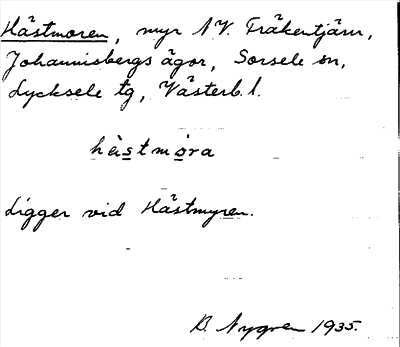 Hästmoren, myr NV. Fräkentjärn,
Johannisbergs ägor, Sorsele sn,
Lycksele tg, Västerb. l.
hästmóra
Ligger vid Hästmyren.
B. Nygren 1935.